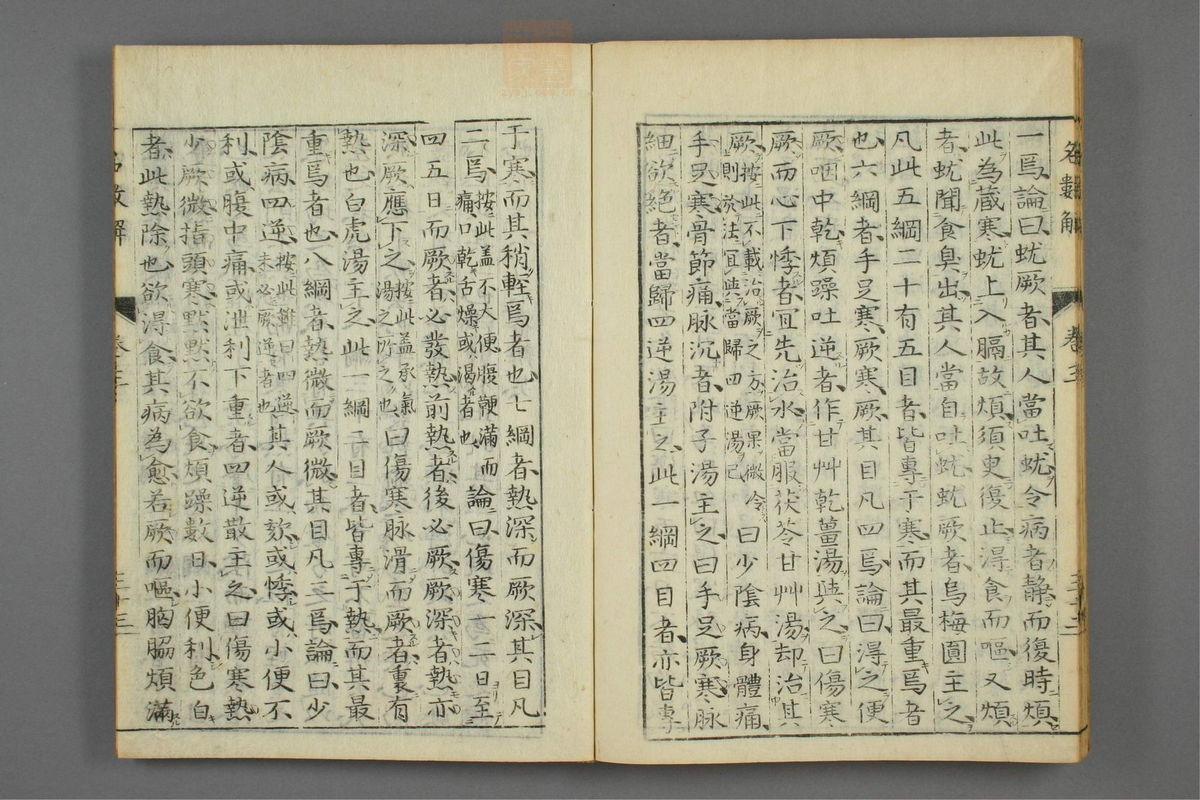 一焉論曰蚘厥者其人當吐蚘今病者靜而復時煩
此為藏寒蚘上入膈故煩須臾復止得食而嘔又煩
者蚘聞食臭出其人當自吐蚘蚘厥者烏梅圓主之
凡此五綱二十有五目者皆專于寒而其最重焉者
也六綱者手足寒厥寒厥其目凡四焉論曰得之便
厥咽中乾煩躁吐逆者作甘艸乾薑湯與之曰傷寒
厥而心下悸者宜先治水當服茯苓甘艸湯却治其
厥按此不載治厥之方厥果微令
則於法宜與當歸四逆湯已曰少陰病身體痛
手足寒骨節痛脉沉者附子湯主之曰手足厥寒脉
細欲絕者當歸四逆湯主之此一綱四目者亦皆專
名數解
卷三
三十二
于寒而其稍輊焉者也七綱者熱深而厥深其目凡
二焉按此盖不大便腹鞕滿而
痛口乾舌燥或渴者也論曰傷寒一二日至
四五日而厥者必發熱前熱者後必厥厥深者熱亦
深厥應下之按此盖承氣
湯之所之也曰傷寒脉滑而厥者裏有
熱也白虎湯主之此一綱二目者皆專于熱而其最
重焉者也八綱者熱微而厥微其目凡三焉論曰少
陰病四逆按此雖曰四逆
未必厥逆者也其人或欬或悸或小便不
利或腹中痛或泄利下重者四逆散主之曰傷寒熱
少厥微指頭寒默默不欲食煩躁數日小便利色白
者此熱除也欲得食其病為愈若厥而嘔胸脇煩滿
名數解
三十三